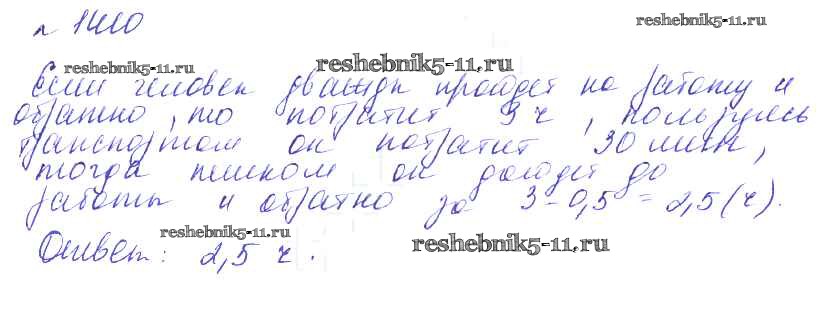 № 1410
reshebnik5-11.ru
reshebnik5-11.ru
reshebnik5-11.ru
Если человек дважды пройдет на работу и
обратно, то потратит 3 ч, пользуясь
транспортом он потратит 30 мин,
тогда пешком он дойдет до
работы и обратно за 3 - 0,5 = 2,5 (ч).
reshebnik5-11.ru
Ответ: 2,5 ч.
reshebnik5-11.ru